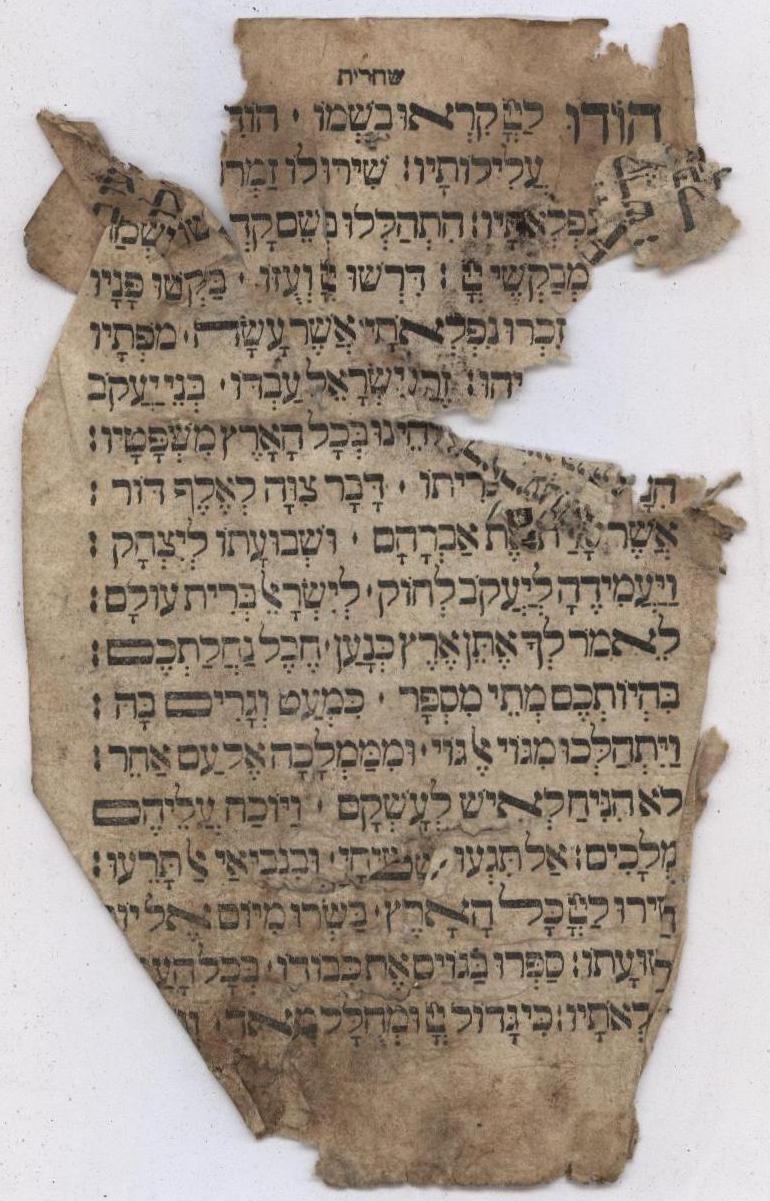 שחרית
הוֹדוּ לַיְיָ קִרְאוּ בִשְׁמוֹ · הוֹדִ
עֲלִילוֹתָיו׃ שִׁירוּ לוֹ זַמְּרוּ
נִפְלְאֹתָיו׃ הִתְהַלְלוּ בְּשֵׁם קָדְ יִשְׂמַח
מְבַקְשֵׁי יְיָ׃ דִּרְשׁוּ יְיָ וְעֻזּוֹ · בַּקְּשׁוּ פָּנָיו
זִכְרוּ נִפְלְאֹתָיו אֲשֶׁר עָשָׂה · מֹפְתָיו
יהוּ׃ זֶרַע יִשְׂרָאֵל עַבְדּוֹ · בְּנֵי יַעֲקֹב
לֹהֵינוּ בְּכָל הָאָרֶץ מִשְׁפָּטָיו׃
בְּרִיתוֹ · דָּבָר צִוָּה לְאֶלֶף דּוֹר׃
אֲשֶׁר כָּרַת אֶת אַבְרָהָם · וּשְׁבוּעָתוֹ לְיִצְחָק׃
וַיַּעֲמִידֶהָ לְיַעֲקֹב לְחוֹק · לְיִשְׂרָאֵל בְּרִית עוֹלָם׃
לֵאמֹר לְךָ אֶתֵּן אֶרֶץ כְּנָעַן · חֶבֶל נַחֲלַתְכֶם׃
בִּהְיוֹתְכֶם מְתֵי מִסְפָּר · כִּמְעַט וְגָרִים בָּהּ׃
וַיִּתְהַלְּכוּ מִגּוֹי אֶל גּוֹי · וּמִמַּמְלָכָה אֶל עַם אַחֵר׃
לֹא הִנִּיחַ לְאִישׁ לְעָשְׁקָם · וַיּוֹכַח עֲלֵיהֶם
מְלָכִים׃ אַל תִּגְּעוּ בִּמְשִׁיחָי · וּבִנְבִיאַי אַל תָּרֵעוּ׃
שִׁירוּ לַיְיָ כָּל הָאָרֶץ · בַּשְּׂרוּ מִיּוֹם אֶל יוֹם
יְשׁוּעָתוֹ׃ סַפְּרוּ בַגּוֹיִם אֶת כְּבוֹדוֹ · בְּכָל הָעַ
לְאֹתָיו׃ כִּי גָדוֹל יְיָ וּמְהֻלָּל מְאֹד ·